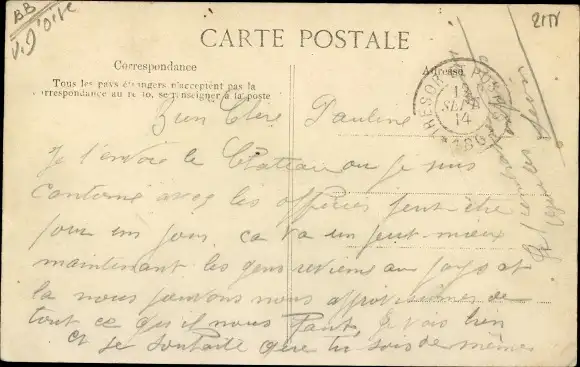 BB
V. d'Oise
2115
CARTE POSTALE
Correspondance
Adresse
Tous les pays étrangers n'acceptent pas la
correspondance au recto, se renseigner à la poste
TRESOR ET POSTES
SEPT
14
Bien Chère Pauline
Je t'envoie le Chateau ou je suis
cantoné avec les officiers peut être
pour un jour ca va un peut mieux
maintenant les gens reviens au pays et
la nous pouvons nous approvisionner de
tout ce qu'il nous faut, Je vais bien
et je souhaite que tu sois de même